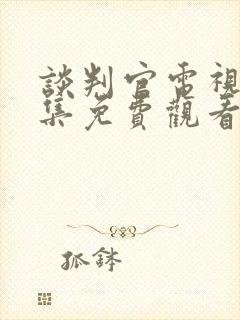 談判官電視
集免費觀看
孤鉢